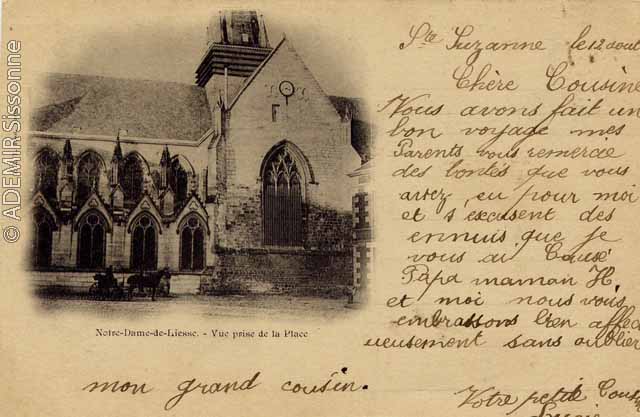 © ADEMIR Sissonne
Ste Suzanne le 12 août
Chère Cousine
Nous avons fait un
bon voyage mes
Parents vous remercie
des bontés que vous
avez eu pour moi
et s'excusent des
ennuis que je
vous ai Causé
Papa maman H.
et moi nous vous
embrassons bien affec
ueusement sans oublier
mon grand cousin.
Votre petite Cous
Notre-Dame-de-Liesse. - Vue prise de la Place